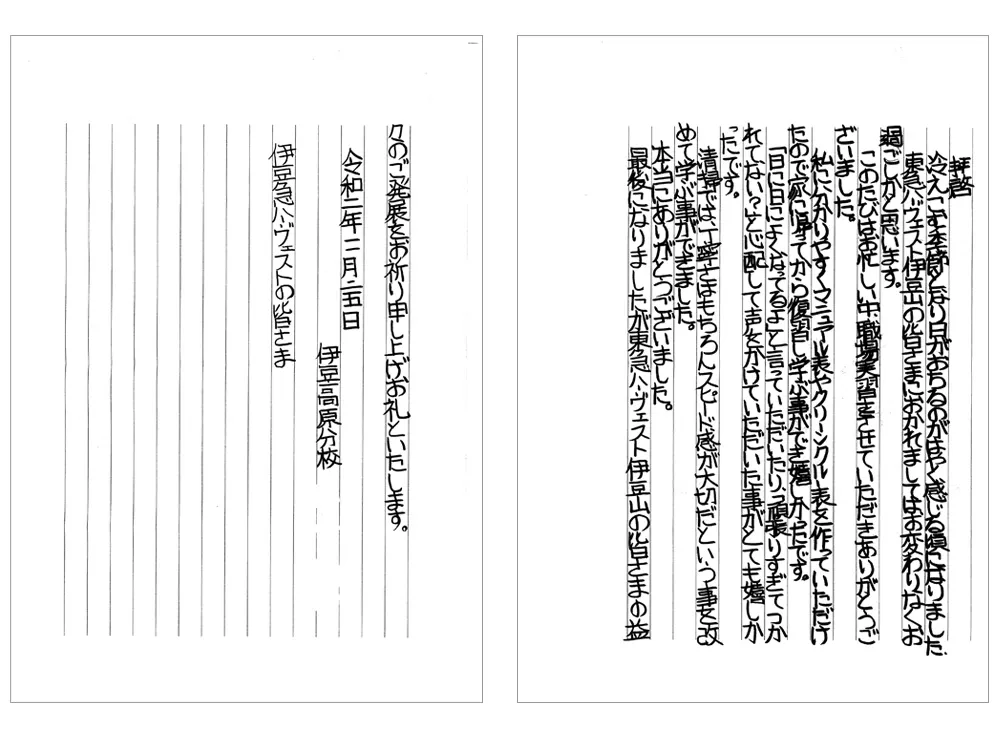 拝啓
冷えこむ季節となり日がおちるのがはやく感じる頃になりました。
東急ハーヴェスト伊豆山の皆さまにおかれましてはお変わりなくお
過ごしかと思います。
このたびはお忙しい中、職場実習をさせていただきありがとうご
ざいました。
私に分かりやすくマニュアル表やクリーンクルー表を作っていただけ
たので家に帰ってから復習し学ぶ事ができ嬉しかったです。
「日に日によくなってるよ」と言っていただいたり、「頑張りすぎてつか
れてない？」と心配して声をかけていただいた事がとても嬉しか
ったです。
清掃では丁寧さはもちろんスピード感が大切だという事を改
めて学ぶ事ができました。
本当にありがとうございました。
最後になりましたが東急ハーヴェスト伊豆山の皆さまの益
々のご発展をお祈り申し上げお礼といたします。
令和二年二月二五日
伊豆高原分校
伊豆急ハーヴェストの皆さま